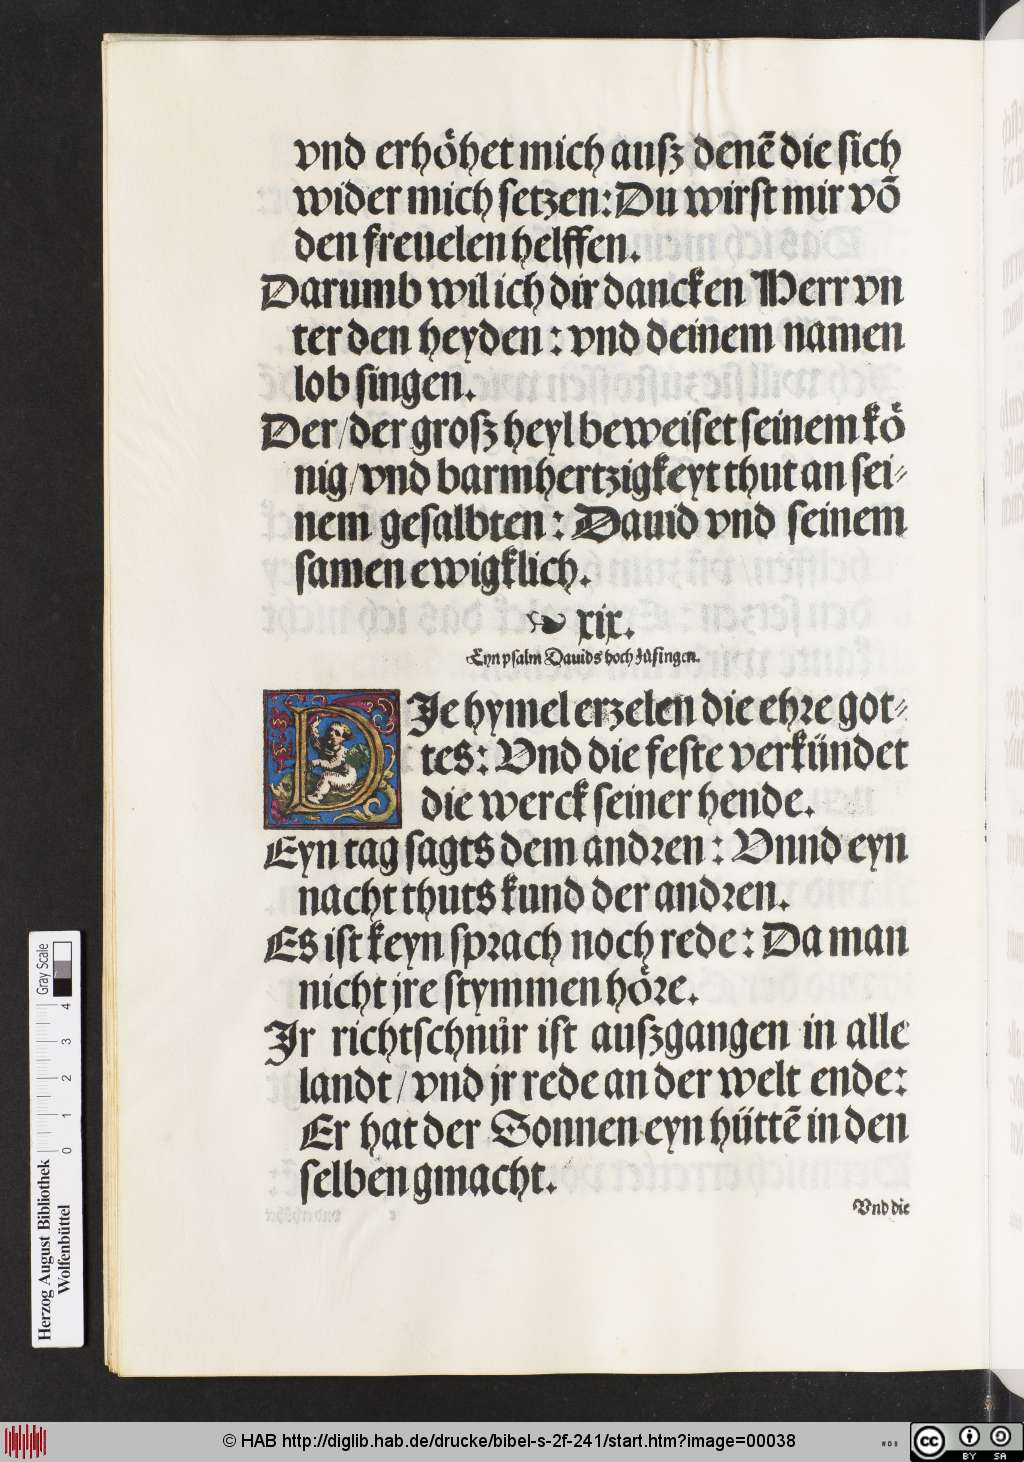 vnd erhoͤhet mich ausz denē die sich
wider mich setzen: Du wirst mir vō
den freuelen helffen.
Darumb wil ich dir dancken Herr vn
ter den heyden : vnd deinem namen
lob singen.
Der/der grosz heyl beweiset seinem koͤ
nig/vnd barmhertzigkeyt thut an sei⸗
nem gesalbten : Dauid vnd seinem
samen ewigklich.
❧ xix.
Eyn psalm Dauids hoch zůsingen.
DJe hymel erzelen die ehre got⸗
tes: Vnd die feste verkündet
die werck seiner hende.
Eyn tag sagts dem andren : Vnnd eyn
nacht thuts kund der andren.
Es ist keyn sprach noch rede : Da man
nicht jre stymmen hoͤre.
Jr richtschnůr ist auszgangen in alle
landt/vnd jr rede an der welt ende:
Er hat der Sonnen eyn hüttē in den
selben gmacht.
Vnd die
Herzog August Bibliothek
Wolfenbüttel
0 1 2 3 4
Gray Scale
© HAB http://diglib.hab.de/drucke/bibel-s-2f-241/start.htm?image=00038
WDB
CC BY SA